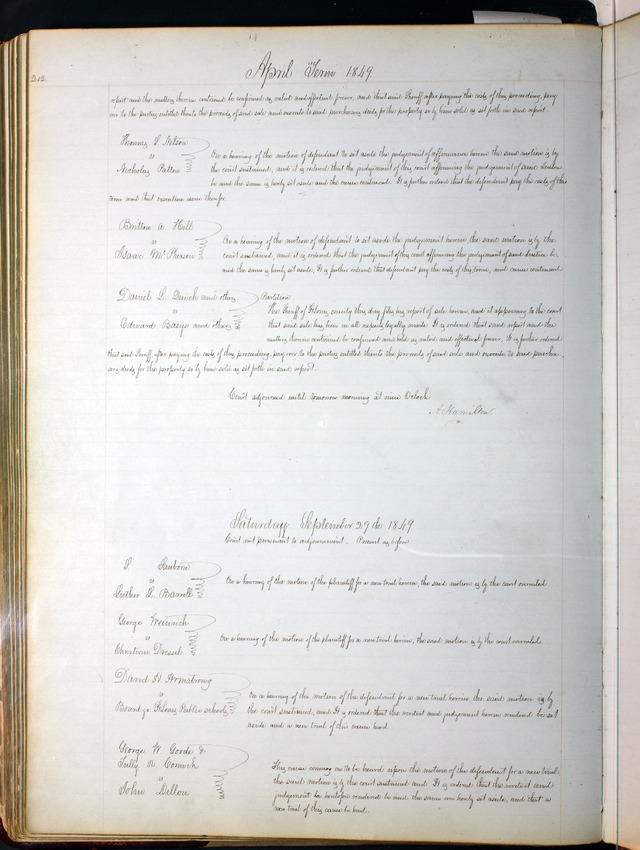 212
April Term 1849.
report and the matters therein contained be confirmed as valid and effectual forever, and that said Sheriff after paying the costs of this proceeding, pay
over to the parties entitled thereto the proceeds of said sale and execute to said purchasers deeds for the property so by him sold as set forth in said report.
Thomas S. Nelson
vs
Nicholas Patton
On a hearing of the motion of defendant to set aside the judgement of affirmance herein the said motion is by
the court sustained, and it is ordered that the judgement of this court affirming the judgement of said Justice
be and the same is hereby set aside and the cause continued. It is further ordered that the defendant pay the costs of this
term and that execution issue therefor.
Britton A. Hill
vs
Isaac McPherson
On a hearing of the motion of defendant to set aside the judgement herein the said motion is by the
court sustained, and it is ordered that the judgement of this court affirming the judgement of said Justice be
and the same is hereby set aside. It is further ordered that defendant pay the costs of this term, and cause continued.
Daniel D. and others
vs
Edward and others
Partition
The Sheriff of St Louis county this day files his report of sale herein, and it appearing to the court
that said sale has been in all respects legally made. It is ordered that said report and the
matters therein contained be confirmed and held as valid and effectual forever. It is further ordered
that said Sheriff, after paying the costs of this proceeding, pay over to the parties entitled thereto the proceeds of said sale and execute to said purchas-
ers deeds for the property so by him sold as set forth in said report.
Court adjourned until tomorrow morning at nine Oclock
A. Hamilton
Saturday September 29th 1849
Court met pursuant to adjournment. Present as before
S Sanborn
vs
Luther L. Barrell
On a hearing of the motion of the plaintiff for a new trial herein, the said motion is by the court overruled.
George
vs
Christian
On a hearing of the motion of the plaintiff for a new trial herein, the said motion is by the court overruled.
David H. Armstrong
vs
Board Pr St Louis Public schools
On a hearing of the motion of the defendant for a new trial herein, the said motion is by
the court sustained, and It is ordered that the verdict and judgement herein rendered be set
aside and a new trial of this cause had.
George W. Goode &
R. Cornick
vs
John Dillon
This cause coming on to be heard upon the motion of the defendant for a new trial
the said motion is by the court sustained and It is ordered that the verdict and
judgement heretofore rendered be and the same are hereby set aside, and that a
new trial of this cause be had.